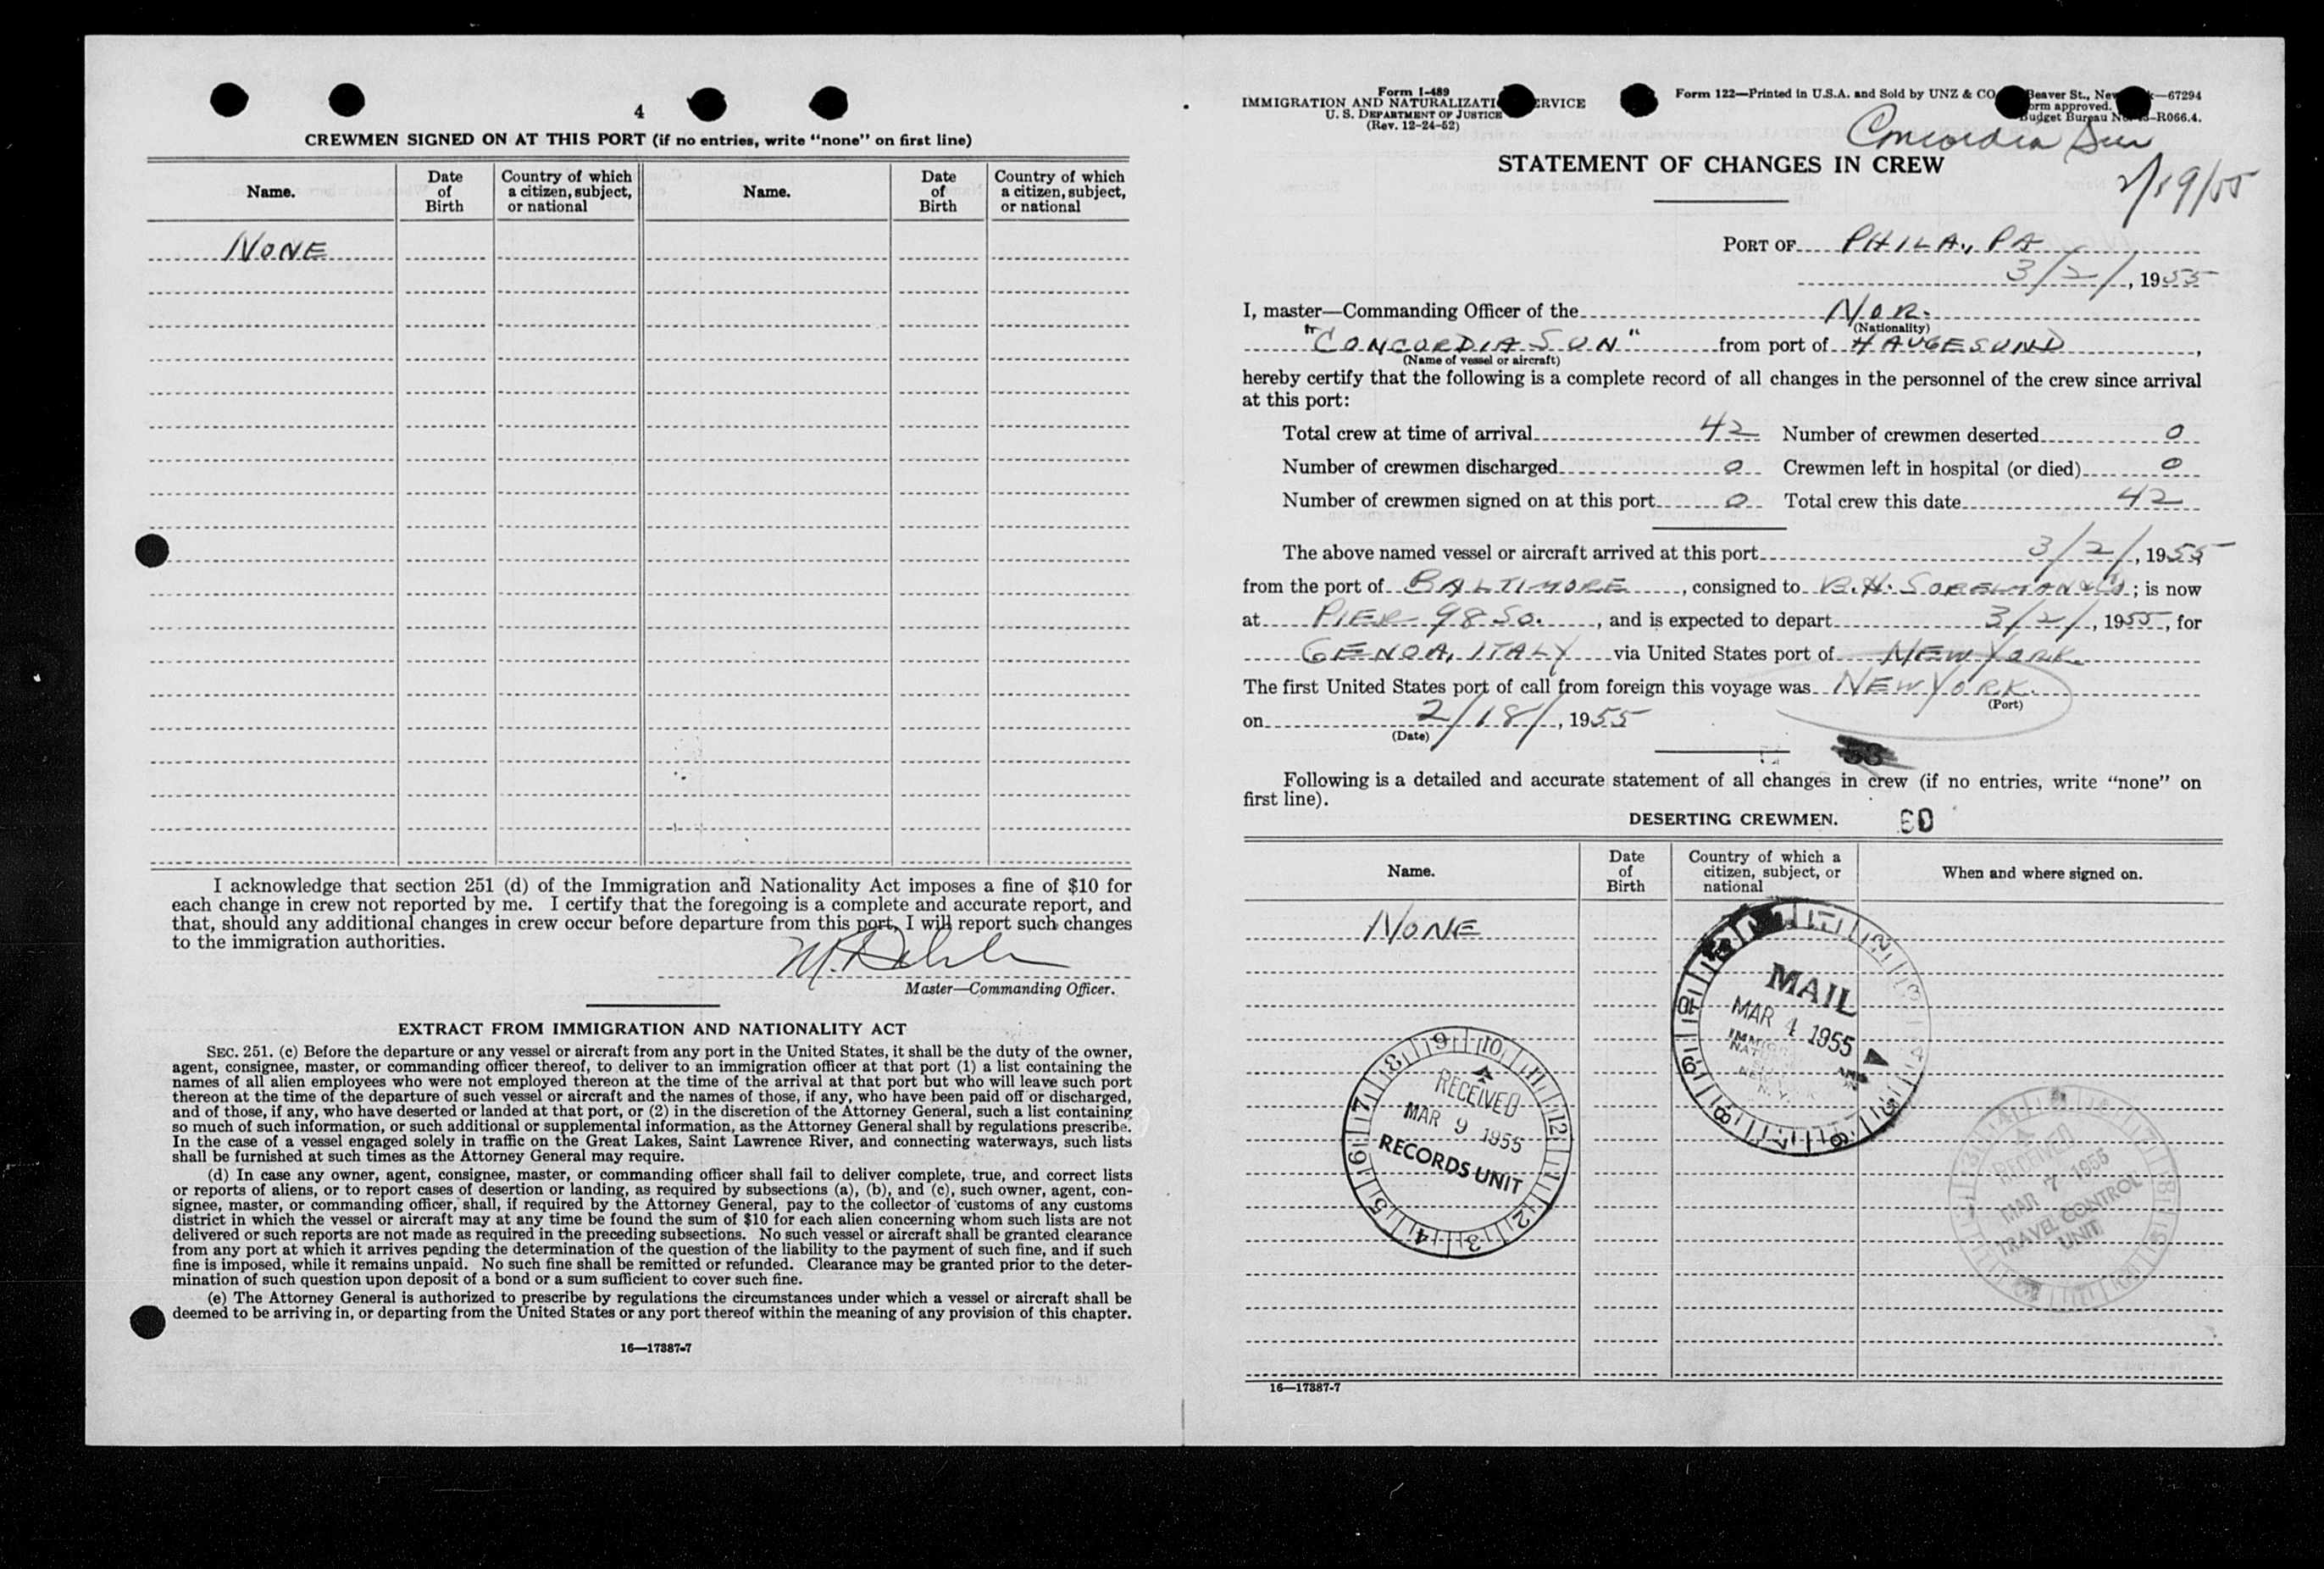 4
CREWMEN SIGNED ON AT THIS PORT (if no entries, write “none” on first line)
Name. Date of Birth Country of which a citizen, subject, or national Name. Date of Birth Country of which a citizen, subject, or national
NONE
I acknowledge that section 251 (d) of the Immigration and Nationality Act imposes a fine of $10 for
each change in crew not reported by me. I certify that the foregoing is a complete and accurate report, and
that, should any additional changes in crew occur before departure from this port, I will report such changes
to the immigration authorities.
Master—Commanding Officer.
EXTRACT FROM IMMIGRATION AND NATIONALITY ACT
SEC. 251. (c) Before the departure or any vessel or aircraft from any port in the United States, it shall be the duty of the owner,
agent, consignee, master, or commanding officer thereof, to deliver to an immigration officer at that port (1) a list containing the
names of all alien employees who were not employed thereon at the time of the arrival at that port but who will leave such port
thereon at the time of the departure of such vessel or aircraft and the names of those, if any, who have been paid off or discharged,
and of those, if any, who have deserted or landed at that port, or (2) in the discretion of the Attorney General, such a list containing
so much of such information, or such additional or supplemental information, as the Attorney General shall by regulations prescribe.
In the case of a vessel engaged solely in traffic on the Great Lakes, Saint Lawrence River, and connecting waterways, such lists
shall be furnished at such times as the Attorney General may require.
(d) In case any owner, agent, consignee, master, or commanding officer shall fail to deliver complete, true, and correct lists
or reports of aliens, or to report cases of desertion or landing, as required by subsections (a), (b), and (c), such owner, agent, con-
signee, master, or commanding officer, shall, if required by the Attorney General, pay to the collector of customs of any customs
district in which the vessel or aircraft may at any time be found the sum of $10 for each alien concerning whom such lists are not
delivered or such reports are not made as required in the preceding subsections. No such vessel or aircraft shall be granted clearance
from any port at which it arrives pending the determination of the question of the liability to the payment of such fine, and if such
fine is imposed, while it remains unpaid. No such fine shall be remitted or refunded. Clearance may be granted prior to the deter-
mination of such question upon deposit of a bond or a sum sufficient to cover such fine.
(e) The Attorney General is authorized to prescribe by regulations the circumstances under which a vessel or aircraft shall be
deemed to be arriving in, or departing from the United States or any port thereof within the meaning of any provision of this chapter.
16—17887-7
Form I-489
IMMIGRATION AND NATURALIZATI RVICE
U. S. DEPARTMENT OF JUSTICE
(Rev. 12-24-52)
Form 122—Printed in U.S.A. and Sold by UNZ & CO Beaver St., New —67294
orm approved.
Budget Bureau No. -R066.4.
Concordia Sun
2/19/55
STATEMENT OF CHANGES IN CREW
PORT OF PHILA., PA
3/2/, 1955
I, master—Commanding Officer of the NOR.
(Nationality)
"CONCORDIA SUN" from port of HAUGESUND,
(Name of vessel or aircraft)
hereby certify that the following is a complete record of all changes in the personnel of the crew since arrival
at this port:
Total crew at time of arrival 42 Number of crewmen deserted 0
Number of crewmen discharged 0 Crewmen left in hospital (or died) 0
Number of crewmen signed on at this port 0 Total crew this date 42
The above named vessel or aircraft arrived at this port 3/2/, 1955
from the port of BALTIMORE, consigned to B.H. SOBELMAN & CO; is now
at PIER 98 SO., and is expected to depart 3/2/, 1955, for
GENOA, ITALY via United States port of NEW YORK.
The first United States port of call from foreign this voyage was NEW YORK.
(Port)
on 2/18/, 1955
(Date)
Following is a detailed and accurate statement of all changes in crew (if no entries, write “none” on
first line).
DESERTING CREWMEN. 60
Name. Date of Birth Country of which a citizen, subject, or national When and where signed on.
NONE
MAIL
MAR 4 1955
RECEIVED
MAR 9 1955
RECORDS UNIT
RECEIVED
MAR 7 1955
TRAVEL CONTROL
UNIT
16—17887-7